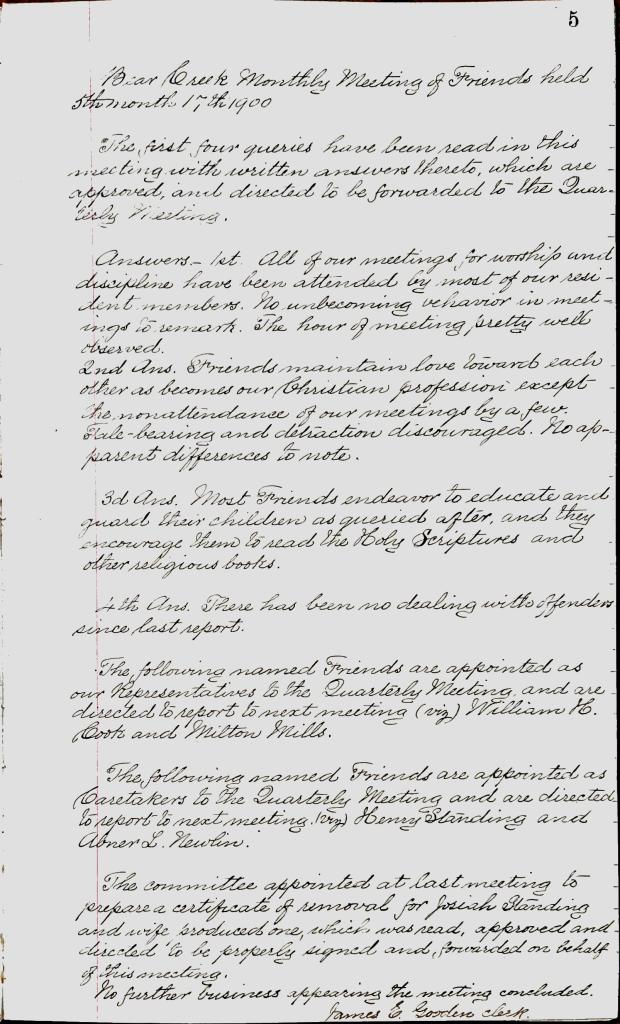 5
Bear Creek Monthly Meeting of Friends held
5th month 17th 1900
The first four queries have been read in this
meeting with written answers thereto, which are
approved, and directed to be forwarded to the Quar-
terly Meeting.
Answers.- 1st. All of our meetings for worship and
discipline have been attended by most of our resi-
dent members. No unbecoming behavior in meet-
ings to remark. The hour of meeting pretty well
observed.
2nd Ans. Friends maintain love toward each
other as becomes our Christian profession except
the nonattendance of our meetings by a few.
Tale-bearing and detraction discouraged. No ap-
parent differences to note.
3d Ans. Most Friends endeavor to educate and
guard their children as queried after, and they
encourage them to read the Holy Scriptures and
other religious books.
4th Ans. There has been no dealing with offenders
since last report.
The following named Friends are appointed as
our Representatives to the Quarterly Meeting, and are
directed to report to next meeting (viz) William H.
Cook and Milton Mills.
The following named Friends are appointed as
Caretakers to the Quarterly Meeting and are directed
to report to next meeting. (viz) Henry Standing and
Abner L. Newlin.
The committee appointed at last meeting to
prepare a certificate of removal for Josiah Standing
and wife produced one, which was read, approved and
directed to be properly signed and, forwarded on behalf
of this meeting.
No further business appearing the meeting concluded.
James E. Gooden clerk.